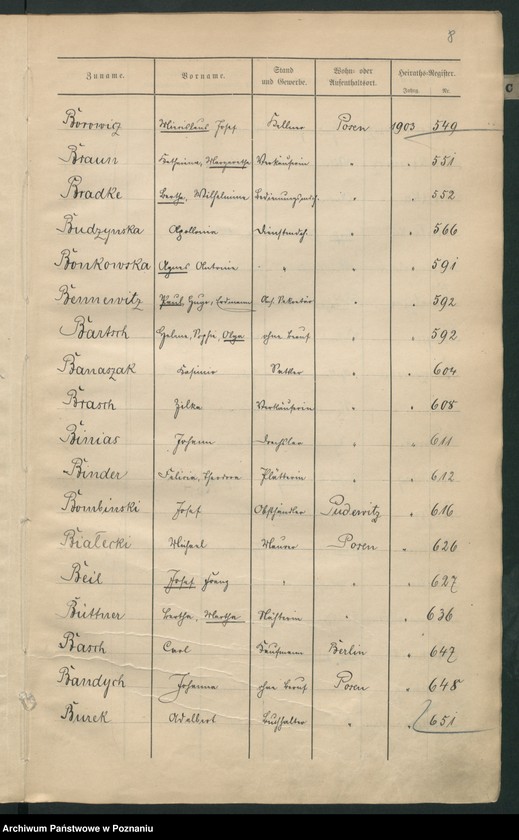 8
Zuname. Vorname. Stand und Gewerbe. Wohn- oder Aufenthaltsort. Heiraths-Register. Jahrg. Nr.
Borowig Miecislaus Josef Kellner Posen 1903 549
Braun Katharina, Margarethe Verkäuferin " " 551
Bradke Bertha, Wilhelmine " " 552
Budzynska Apollonia Dienstmdch. " " 566
Bonkowska Agnes Antonie " " " 591
Bennewitz Paul Hugo, Erdmann Sekretär " " 592
Bartsch Helene, Sophie, Olga ohne Beruf " " 592
Banaszak Kasimir Sattler " " 604
Brasch Zilka Verkäuferin " " 608
Binias Johann Drechsler " " 611
Binder Felicia, Theodora Plätterin " " 612
Bombinski Josef Obsthändler Pudewitz " 616
Białecki Michael Maurer Posen " 626
Beil Josef Franz " " " 627
Büttner Bertha, Martha Nähterin " " 636
Basch Carl Kaufmann Berlin " 647
Bandych Johanna ohne Beruf Posen " 648
Burek Adalbert Buchhalter " " 651
C
Archiwum Państwowe w Poznaniu